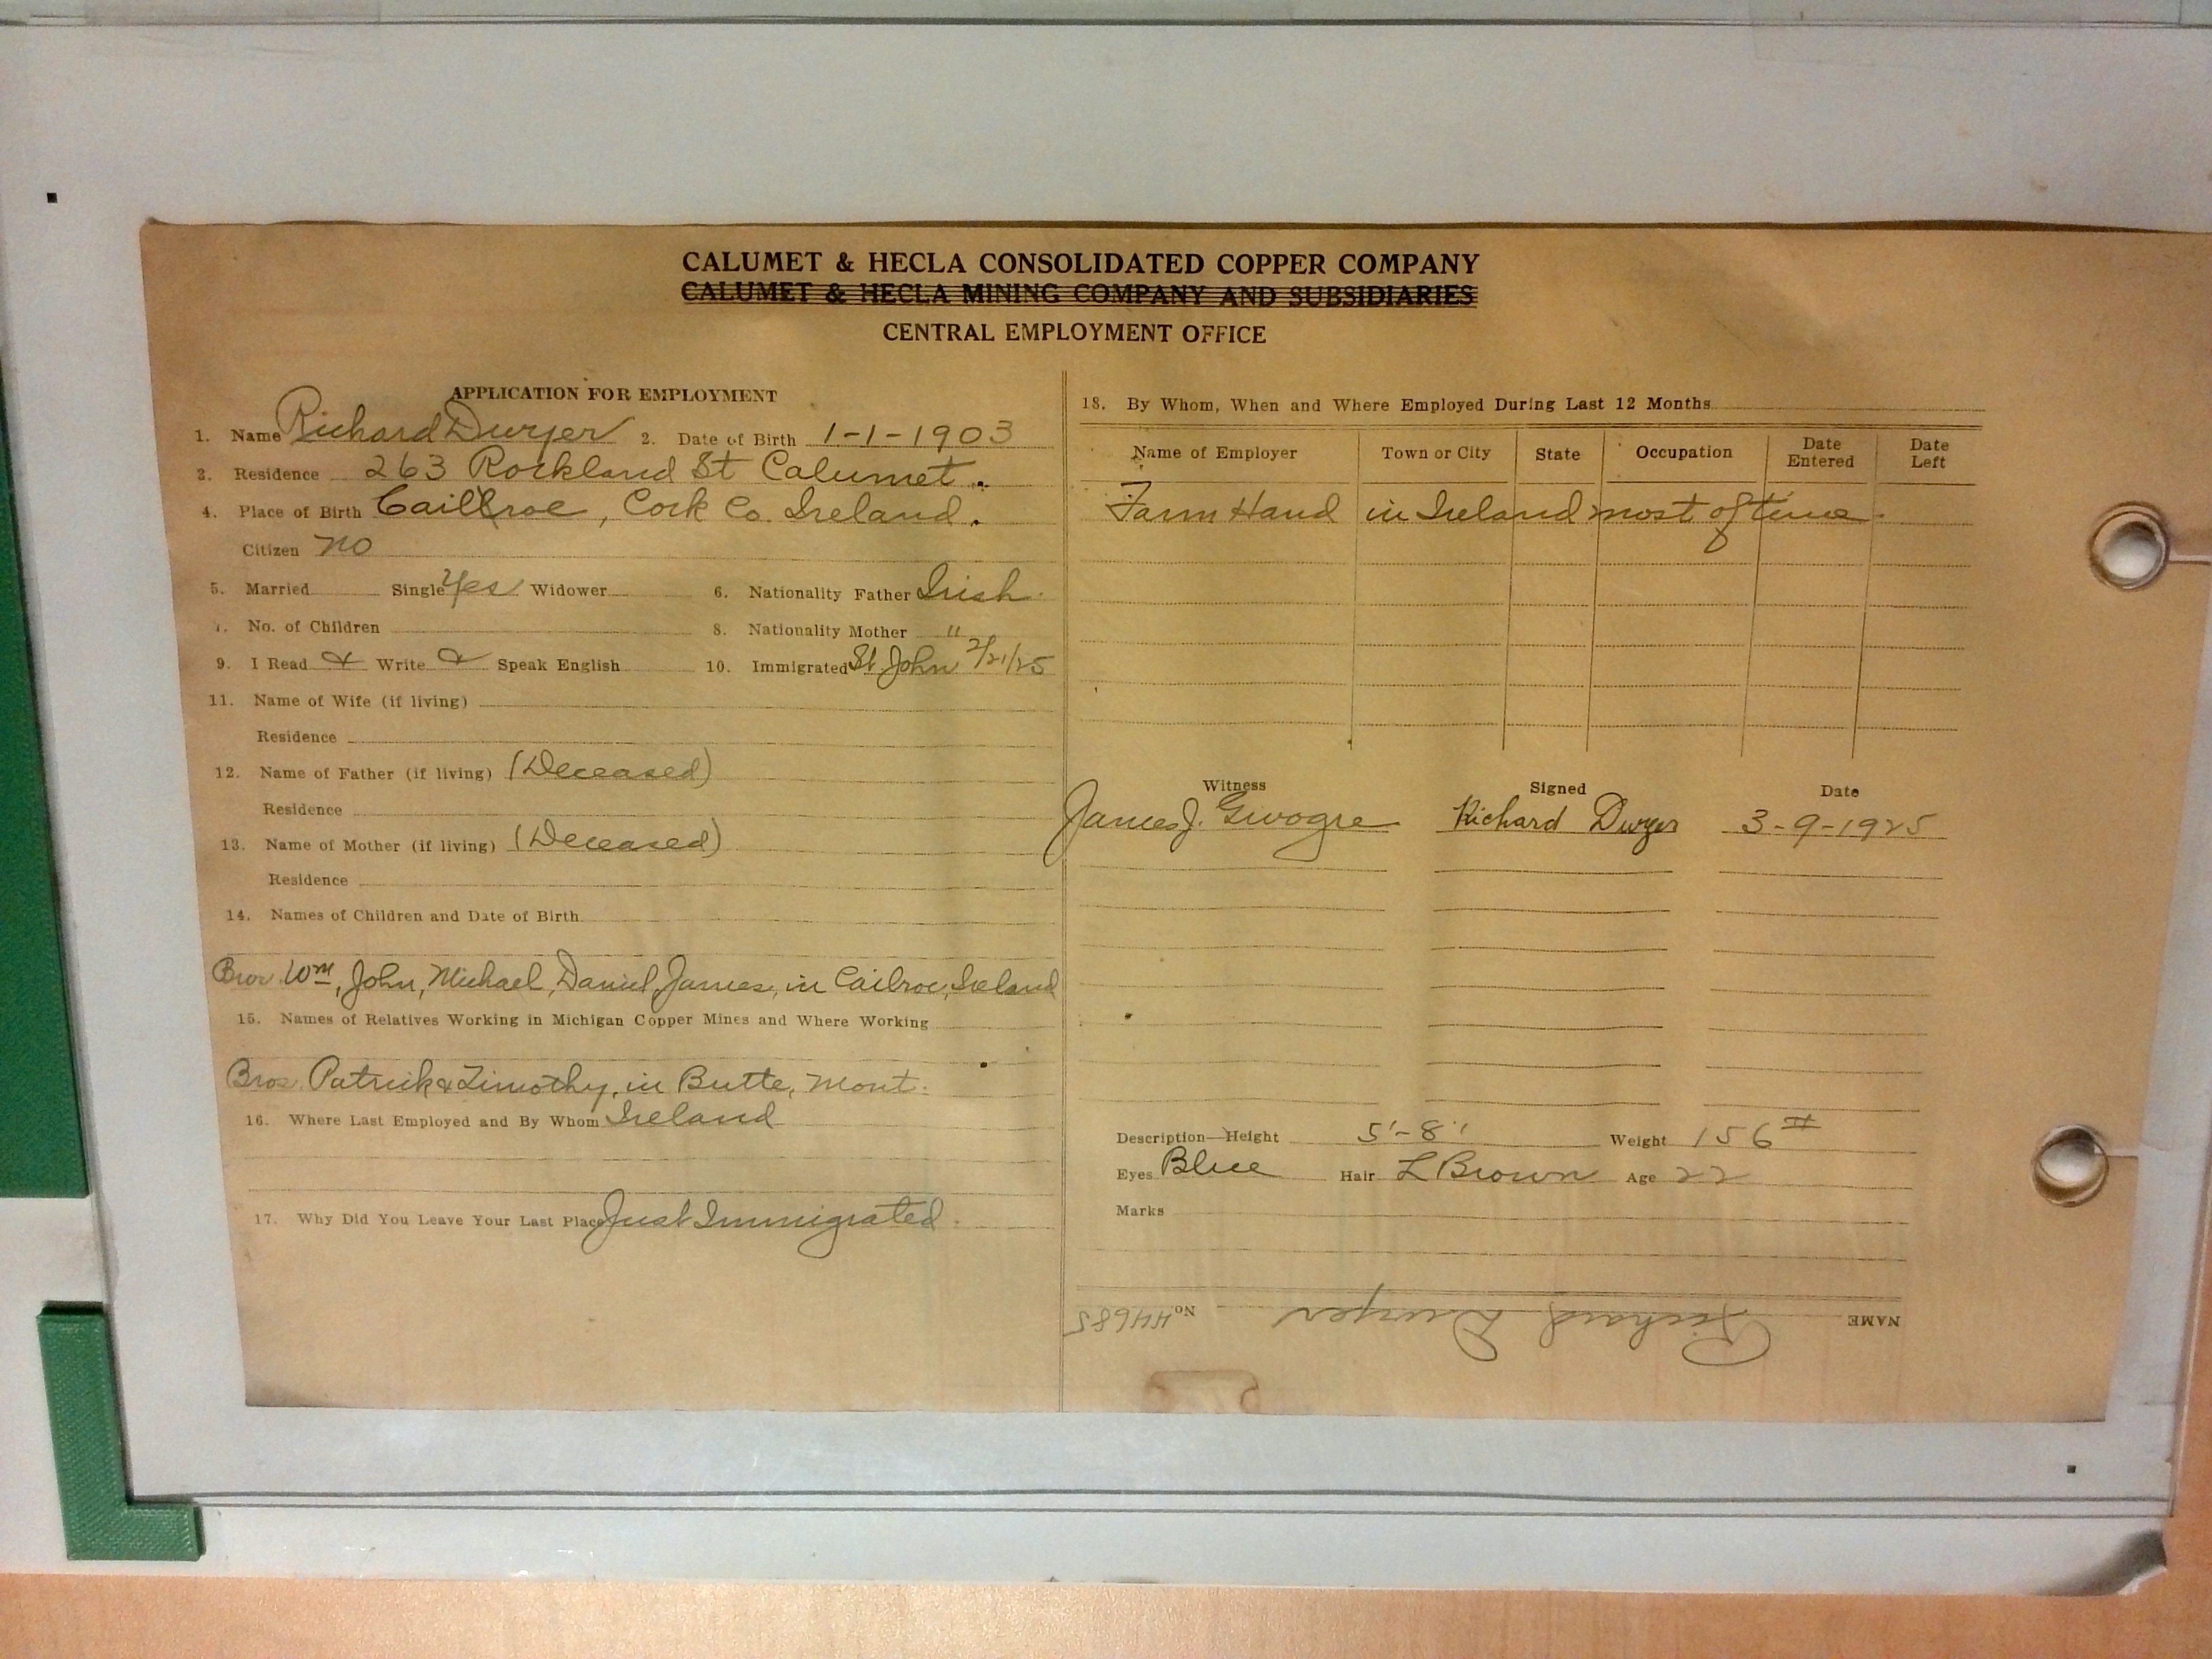 CALUMET & HECLA CONSOLIDATED COPPER COMPANY
CALUMET & HECLA MINING COMPANY AND SUBSIDIARIES
CENTRAL EMPLOYMENT OFFICE
APPLICATION FOR EMPLOYMENT
1. Name Richard Dwyer 2. Date of Birth 1-1-1903
3. Residence 263 Rockland St Calumet.
4. Place of Birth Cailroe, Cork Co. Ireland.
Citizen no
5. Married Single Yes Widower 6. Nationality Father Irish.
7. No. of Children 8. Nationality Mother "
9. I Read & Write & Speak English 10. Immigrated St John 2/21/25
11. Name of Wife (if living)
Residence
12. Name of Father (if living) (Deceased)
Residence
13. Name of Mother (if living) (Deceased)
Residence
14. Names of Children and Date of Birth
Bros Wm, John, Michael, Daniel, James, in Cailroe, Ireland
15. Names of Relatives Working in Michigan Copper Mines and Where Working
Bros. Patrick & Timothy, in Butte, Mont.
16. Where Last Employed and By Whom Ireland
17. Why Did You Leave Your Last Place Just Immigrated.
18. By Whom, When and Where Employed During Last 12 Months
Name of Employer Town or City State Occupation Date Entered Date Left
Farm Hand in Ireland most of time.
Witness Signed Date
James J. Richard Dwyer 3-9-1925
Description—Height 5'-8" Weight 156 #
Eyes Blue Hair L Brown Age 22
Marks
NAME Richard Dwyer No. 44685